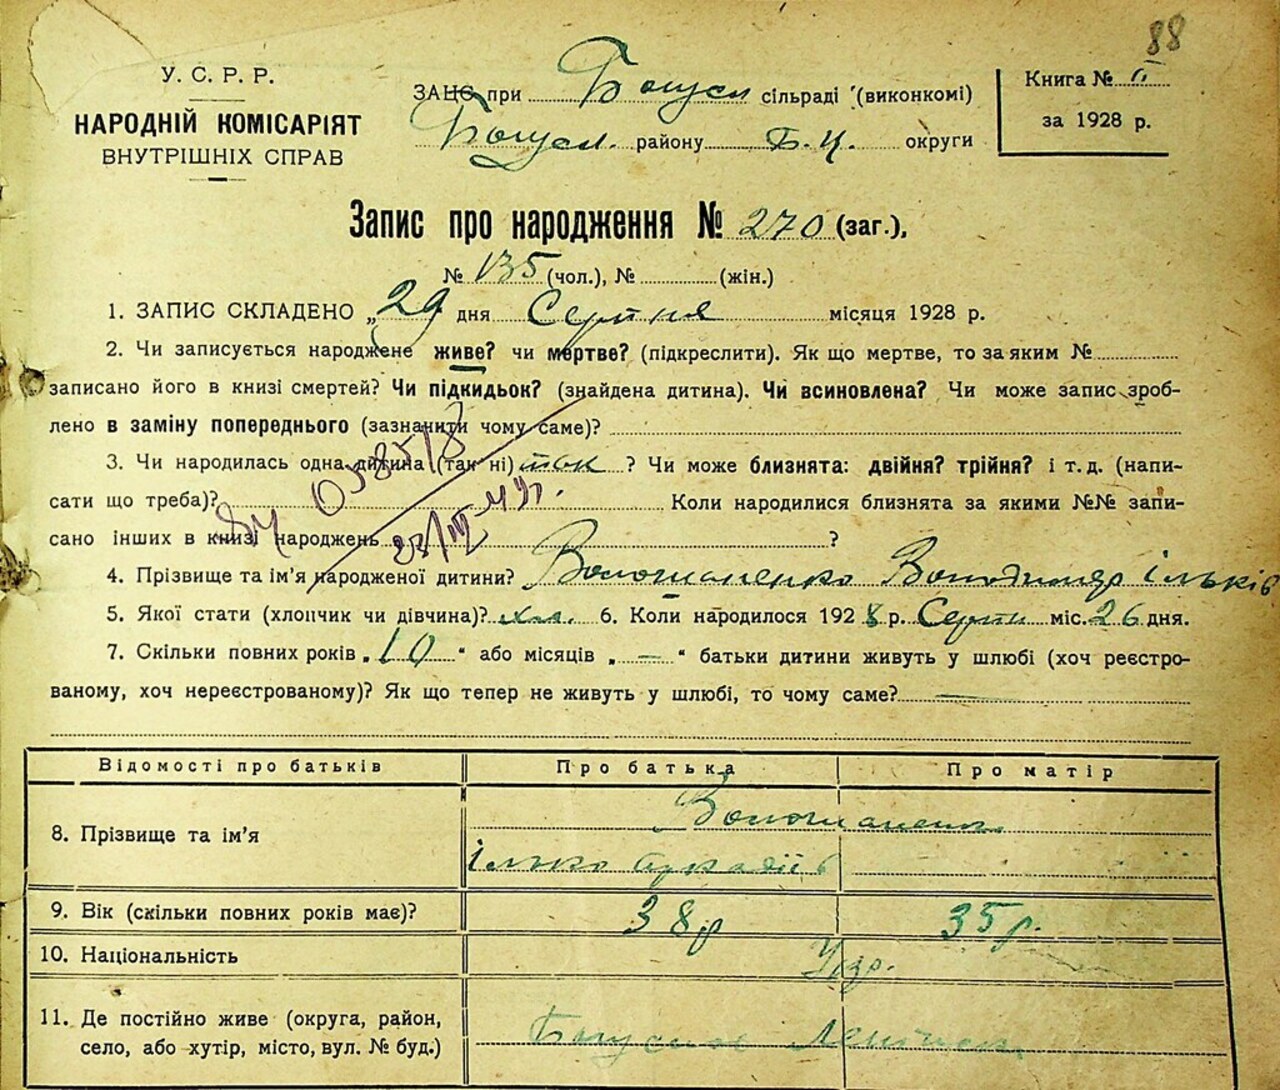 88
У. С. Р. Р.
НАРОДНІЙ КОМІСАРІЯТ
ВНУТРІШНІХ СПРАВ
ЗАЦС при Богусл сільраді (виконкомі)
Богусл. району Б.Ц. округи
Книга № II
за 1928 р.
Запис про народження № 270 (заг.),
№ 135 (чол.), № (жін.)
1. ЗАПИС СКЛАДЕНО „29 дня Серпня місяця 1928 р.
2. Чи записується народжене живе? чи мертве? (підкреслити). Як що мертве, то за яким №
записано його в книзі смертей? Чи підкидьок? (знайдена дитина). Чи всиновлена? Чи може запис зроб-
лено в заміну попереднього (зазначити чому саме)?
3. Чи народилась одна дитина (так ні) так ? Чи може близнята: двійня? трійня? і т. д. (напи-
сати що треба)? Коли народилися близнята за якими №№ запи-
сано інших в книзі народжень ?
4. Прізвище та ім'я народженої дитини? Володимир Ільків
5. Якої стати (хлопчик чи дівчина)? хл. 6. Коли народилося 1928 р. Серпн міс. 26 дня.
7. Скільки повних років „10“ або місяців „—“ батьки дитини живуть у шлюбі (хоч реєстро-
ваному, хоч нереєстрованому)? Як що тепер не живуть у шлюбі, то чому саме? —
Відомості про батьків Про батька Про матір
8. Прізвище та ім'я
Ілько Аркадіїв
9. Вік (скільки повних років має)? 38 р 35 р.
10. Національність Укр.
11. Де постійно живе (округа, район,
село, або хутір, місто, вул. № буд.) Богуслав